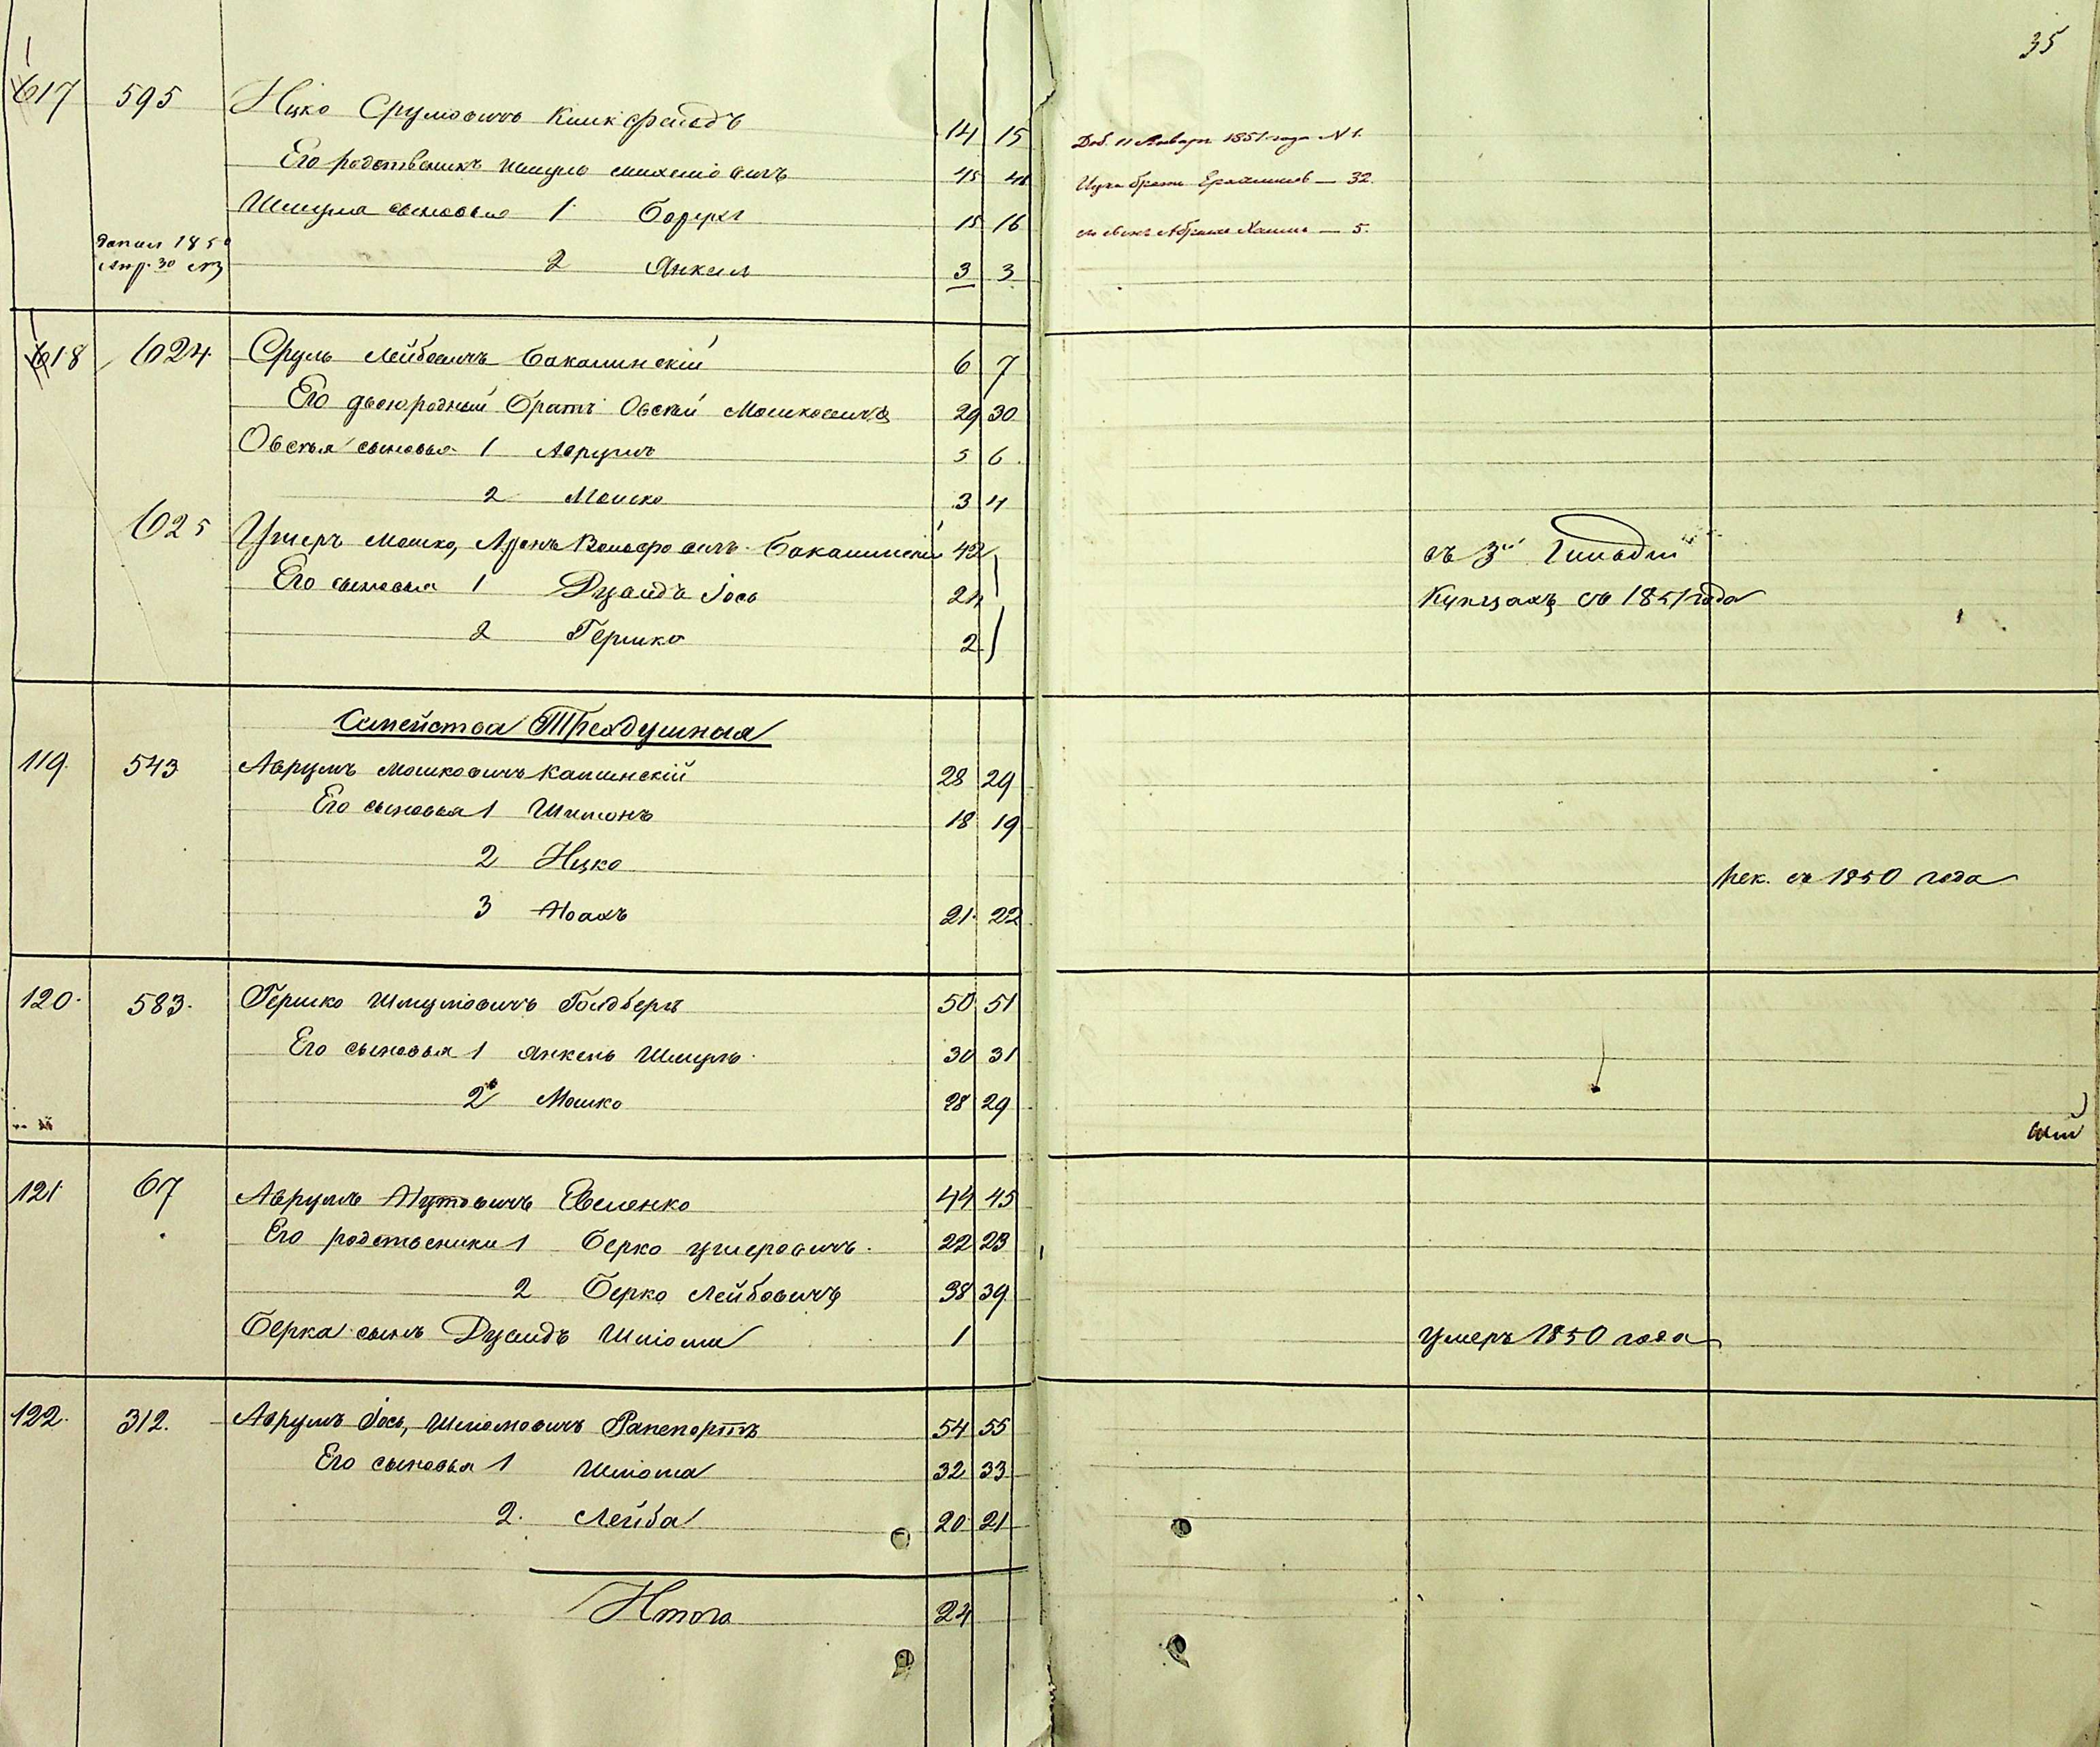 35
617 595 Ицко Срулиовичъ 14 15 Доб. 11 Января 1851 года N 1.
Его родственикъ Шмулъ 45 46 брата 32.
Шмуля сыновья 1 Борухъ 15 16 Хаимъ 5.
1850
2 Янкель 3 3
Апр. 30
618 624. Сруль Лейбовичъ Бакалинскій 6 7
Его двоюродный братъ Овсѣй Мошковичъ 29 30
Овсѣя сыновья 1 Аврумъ 5 6
2 Мошко 3 4
625 Ушеръ Мошко, Аронъ Вольфовичъ Бакалинскій 42 въ 3й Гильдіи
Его сыновья 1 Дувидъ Іось 24 Купцахъ съ 1851 года
2 Гершко 2
Семейства Трехдушныя
119. 543 Аврумъ Мошковичъ Калинскій 28 29
Его сыновья 1 Шимонъ 18 19
2 Ицко Рек. съ 1850 года
3 Ноахъ 21 22
120. 583. Гершко Шмулiовичъ Голдбергъ 50 51
Его сыновья 1 Янкель Шмуль 30 31
2 Мошко 28 29
121 67 Аврумъ Нутовичъ Евсленко 44 45
Его родственики 1 Берко Ушеровичъ 22 23
2 Берко Лейбовичъ 38 39
Берка сынъ Дувидъ Шліома 1 умеръ 1850 года
122. 312. Аврумъ Іось, Шліомовичъ Рапепортъ 54 55
Его сыновья 1 Шліома 32 33
2. Лейба 20 21
Итого 24